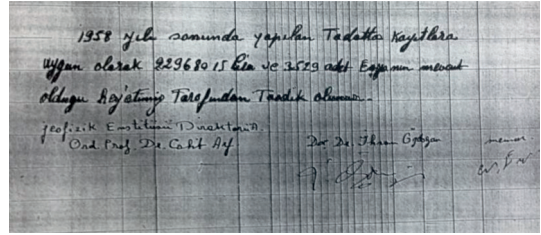 1958 yılı sonunda yapılan Tadatta Kayıtlara
uygun olarak 229680 15 lira ve 3529 adet Eşyanın mevcut
olduğu Heyetimiz Tarafından Tasdik olunur.
Jeofizik Enstitüsü Direktörü
Ord. Prof. Dr. Cahit Arf Doç. Dr. İhsan Özdoğan memur